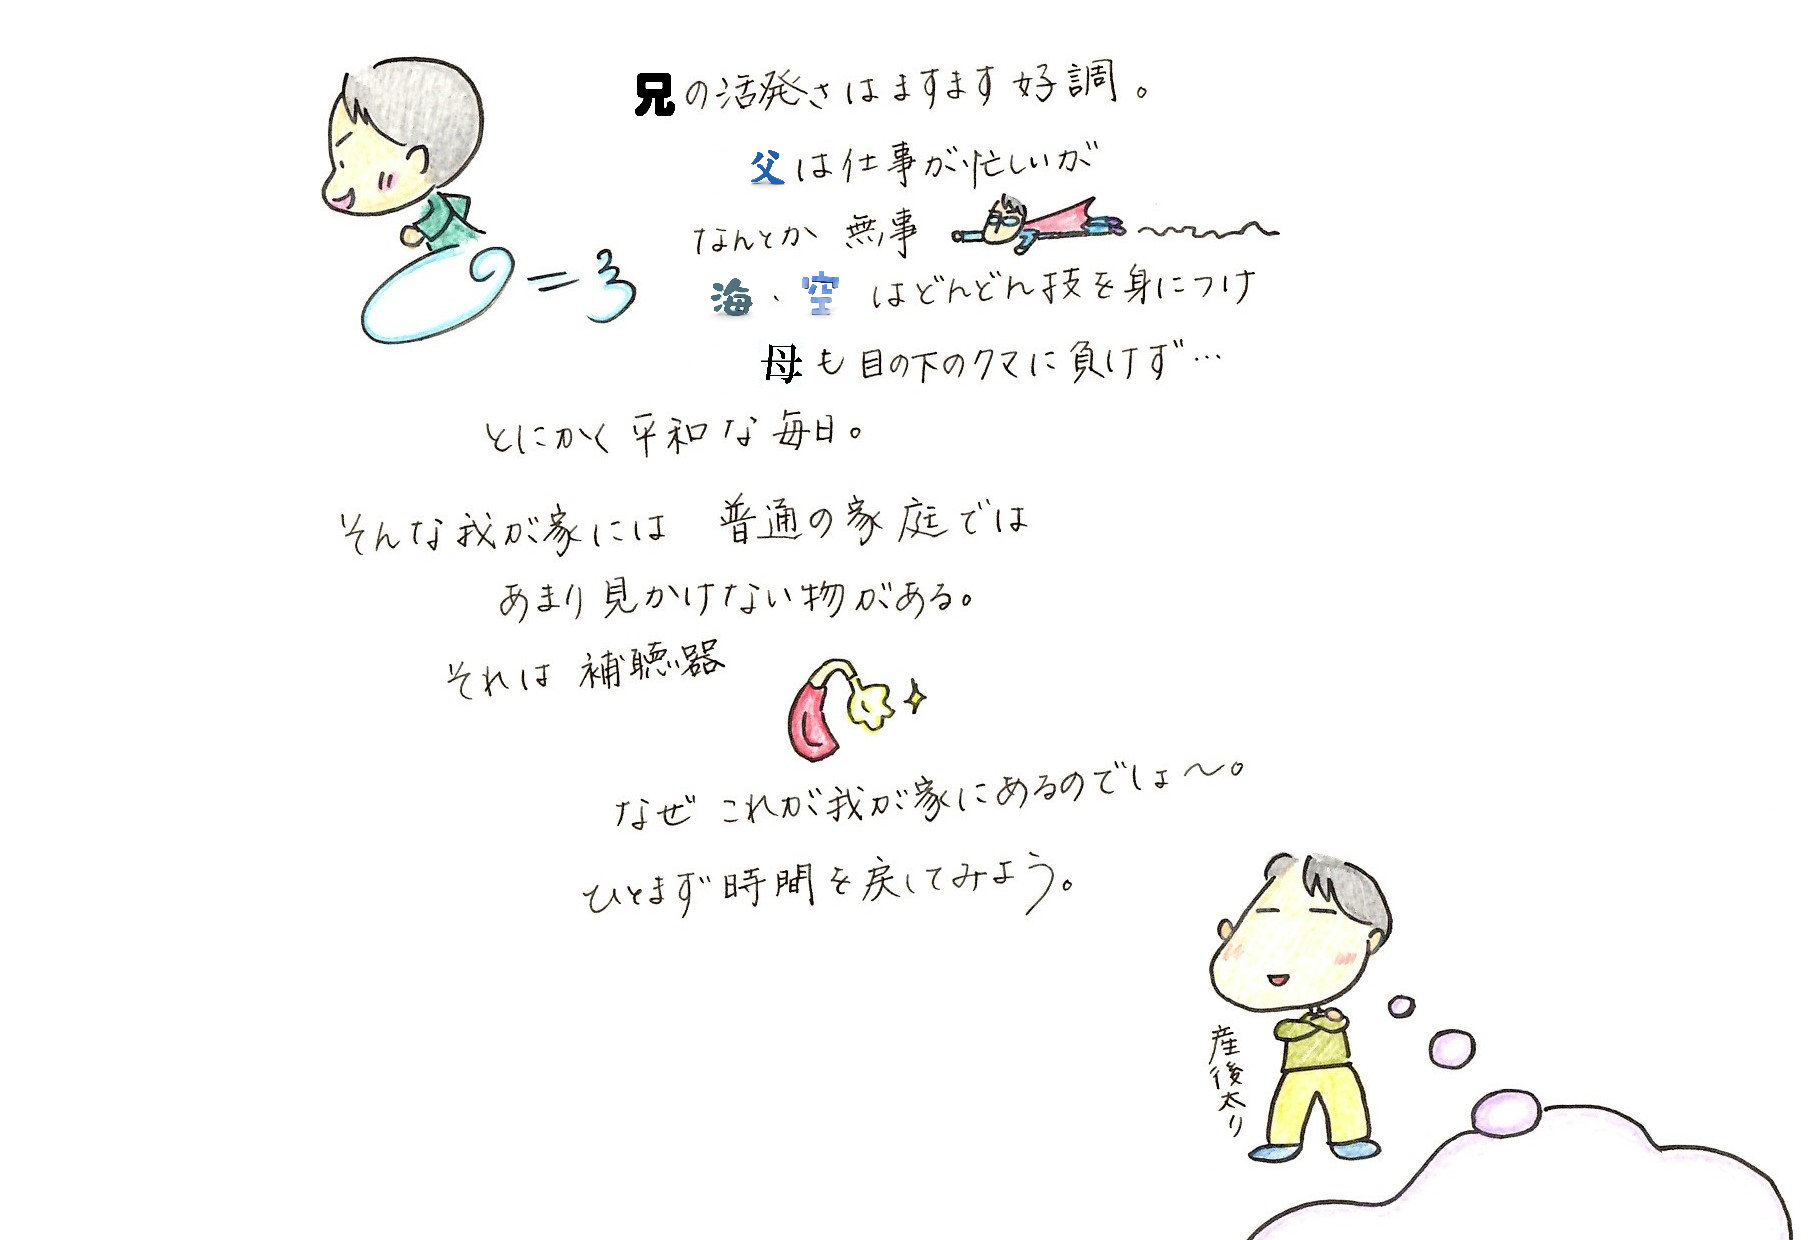 兄の活発さはますます好調。
父は仕事が忙しいが
なんとか 無事
海・空 はどんどん技を身につけ
母も目の下のクマに負けず…
とにかく平和な毎日。
そんな我が家には 普通の家庭では
あまり見かけない物がある。
それは 補聴器
なぜ これが我が家にあるのでしょ〜。
ひとまず時間を戻してみよう。
産後太り